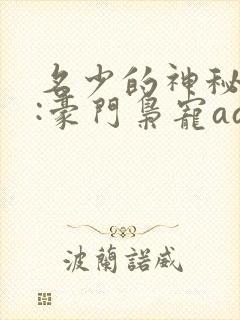 名少的神秘
:豪門梟寵aa
波蘭諾威